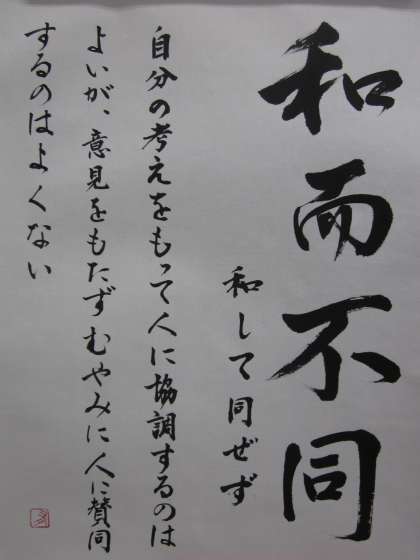 和而不同
和して同ぜず
自分の考えをもって人に協調するのは
よいが、意見をもたずむやみに人に賛同
するのはよくない